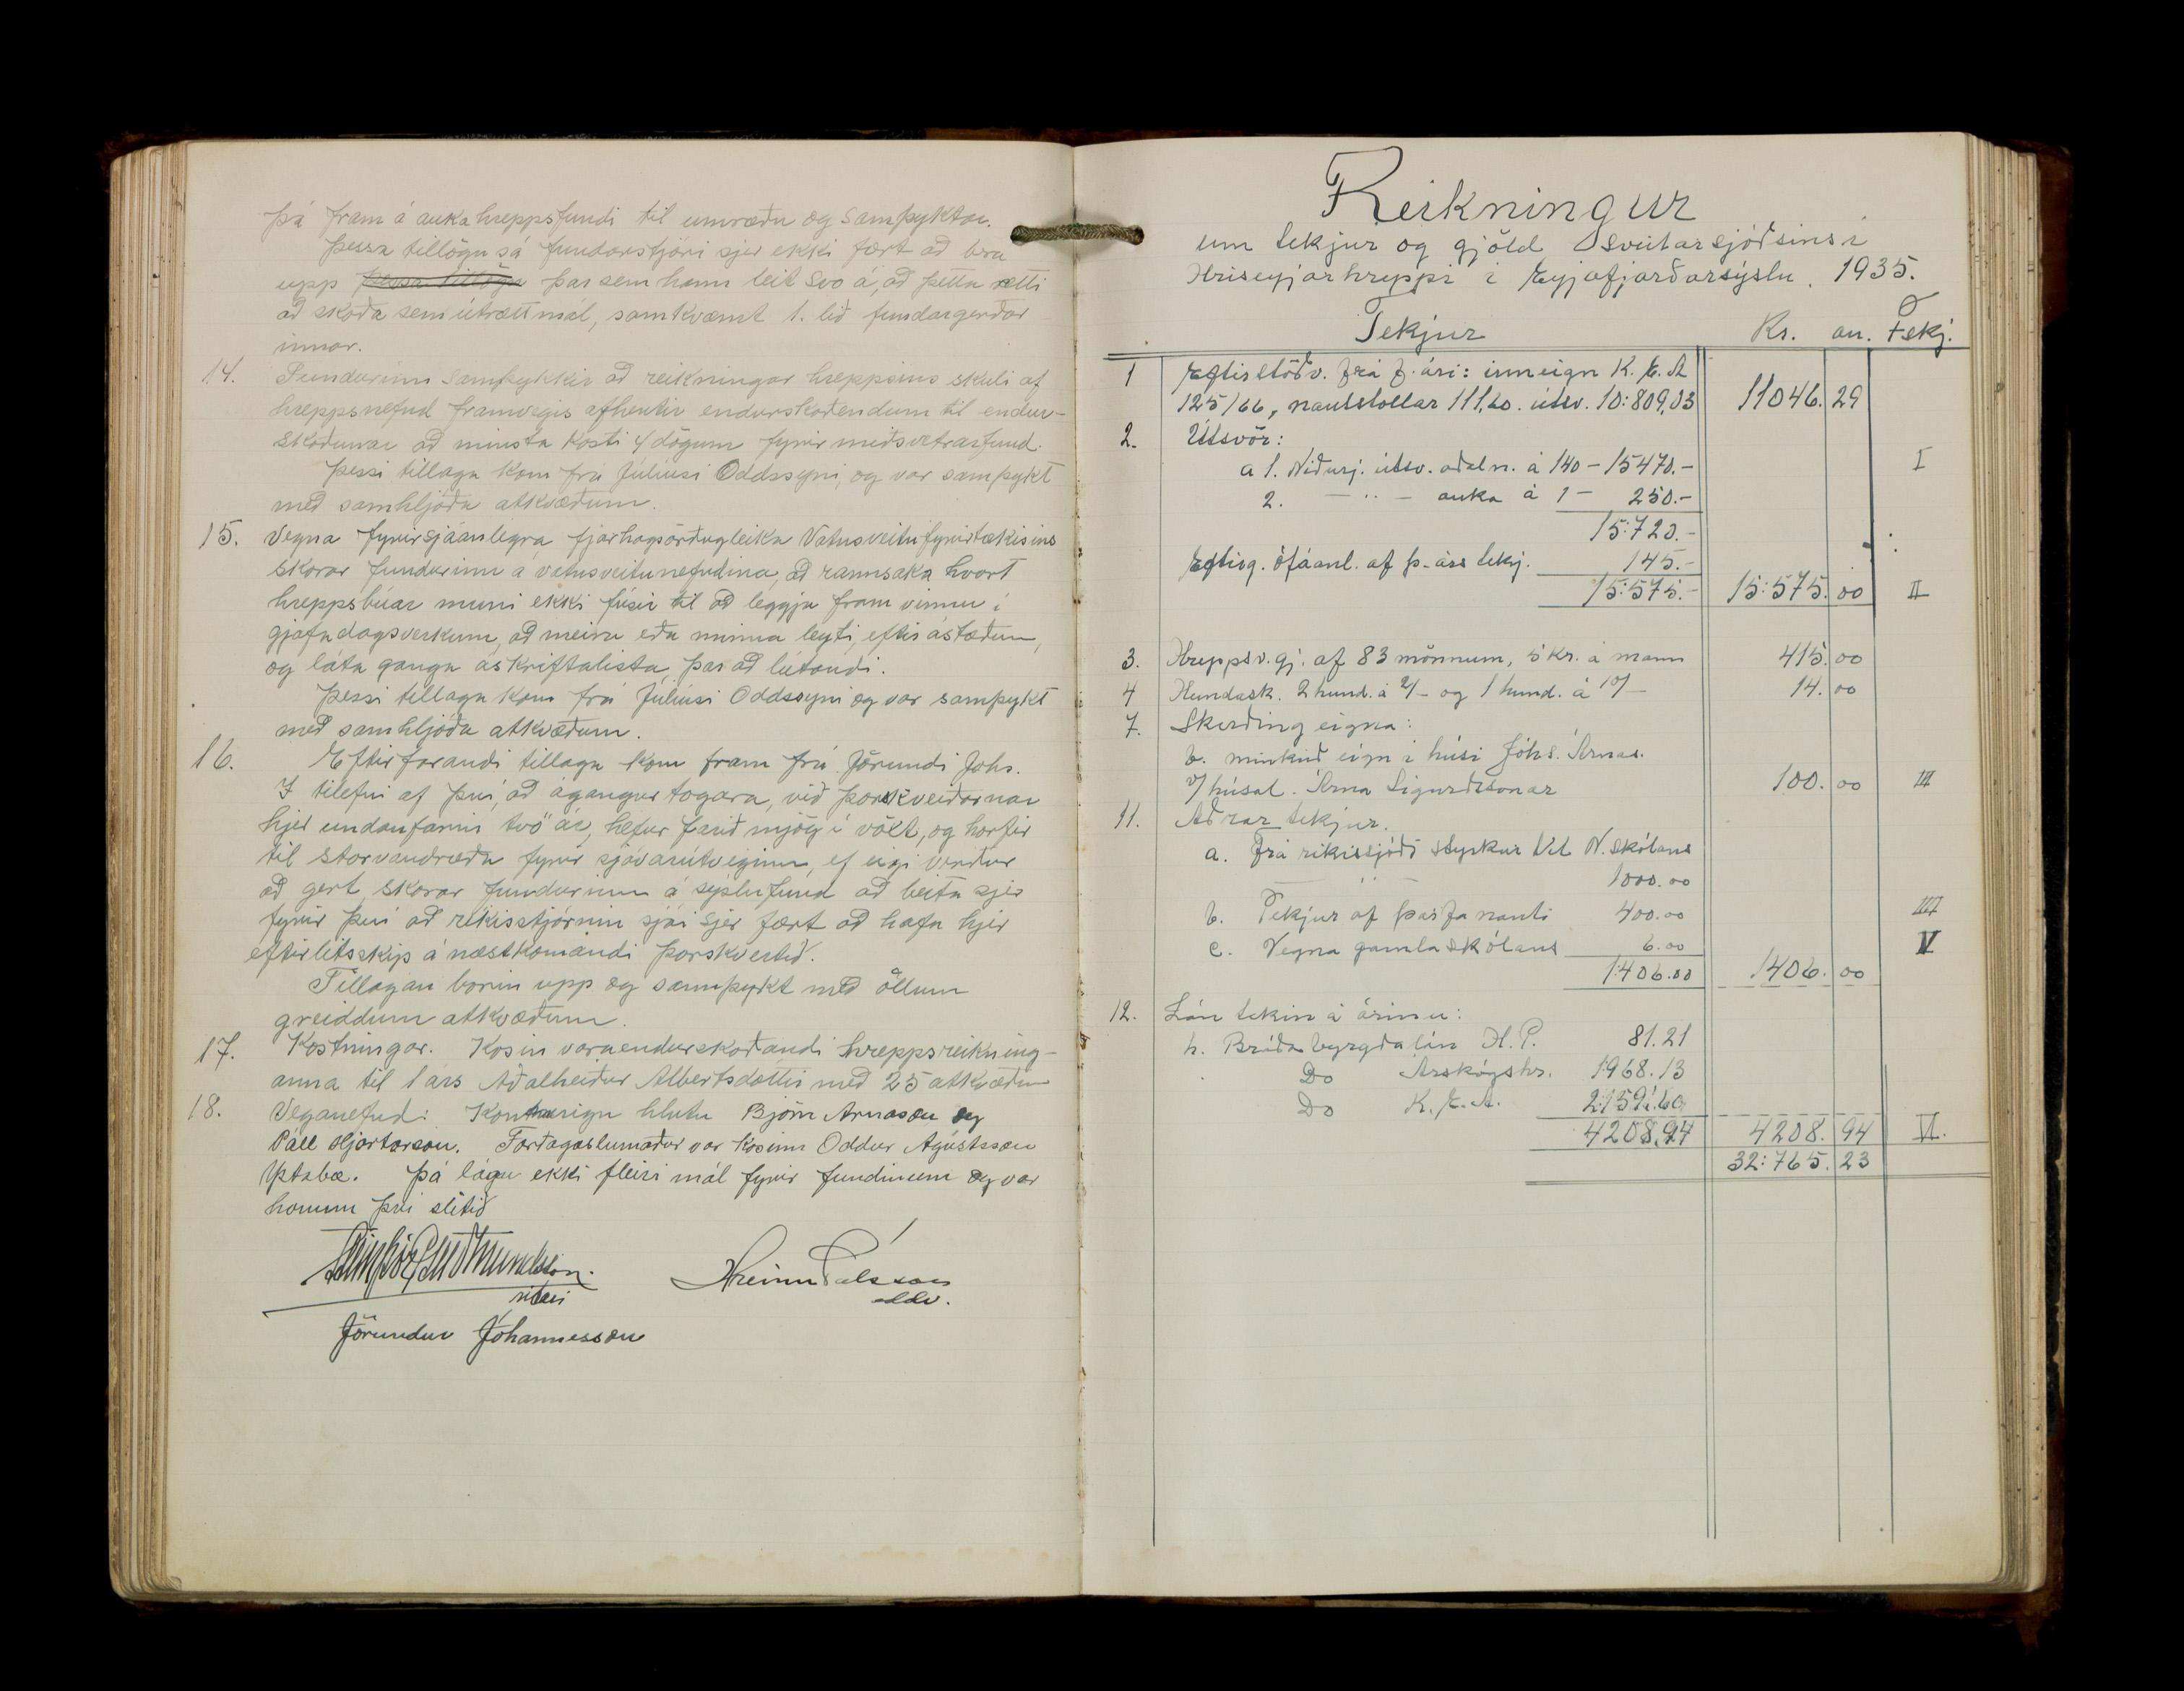 þá fram á auka hreppsfundi til umræðu og samþyktar.
Þessa tillögu sá fundarstjóri sjer ekki fært að bera
upp þessa tillögu þar sem hann leit svo á, að þetta ætti
að skoða sem útrætt mál, samkvæmt 1. lið fundargerðar
innar.
14. Fundurinn samþykkir að reikningar hreppsins skuli af
hreppsnefnd framvegis afhentir endurskoðendum til endur-
skoðunar að minsta kosti 4 dögum fyrir miðsvetrarfund.
Þessi tillaga kom frá Júlíusi Oddssyni, og var samþykt
með samhljóða atkvæðum.
15. Vegna fyrirsjáanlegra fjárhagsörðugleika Vatnsveitufyrirtækisins
skorar fundurinn á vatnsveitunefndina, að rannsaka hvort
hreppsbúar muni ekki fúsir til að leggja fram vinnu í
gjafadagsverkum, að meiru eða minna leyti, eftir ástæðum,
og láta ganga áskriftalista, þar að lútandi.
Þessi tillaga kom frá Júlíusi Oddssyni og var samþykt
með samhljóða atkvæðum.
16. Eftirfarandi tillaga kom fram frá Jörundi Johs.
Í tilefni af því, að ágangur togara, við þorskveiðarnar
hjer undanfarin tvö ár, hefur farið mjög í vöxt, og horfir
til stórvandræða fyrir sjávarútveginn, ef eigi verður
að gert, skorar fundurinn á sýslufund að beita sjer
fyrir því að ríkisstjórnin sjái sjer fært að hafa hjer
eftirlitsskip á næstkomandi þorskvertíð.
Tillagan borin upp og samþykt með öllum
greiddum atkvæðum.
17. Kostningar. Kosin varaendurskoðandi hreppsreikning-
anna til 1 árs Aðalheiður Albertsdóttir með 25 atkvæðum
18. Veganefnd: Kosningu hlutu Björn Arnason og
Páll Hjartarson. Forðagæslumaður var kosinn Oddur Agústsson
Ystabæ. Þá lágu ekki fleiri mál fyrir fundinum og var
honum því slitið
Guðmundsson.
ritari
Hreinn Pálsson
oddv.
Jörundur Jóhannesson
Reikningur
um tekjur og gjöld Sveitarsjóðsins í
Hríseyjarhreppi í Eyjafjarðarsýslu. 1935.
Tekjur Kr. au. Fskj.
1 Eftirstöðv. frá f. ári: inneign K. E. A
125/66, nautstollar 111,60. útsv. 10:809,03 11046. 29
2. Útsvör:
a 1. Niðurj. útsv. aðaln. á 140 – 15470.– I
2. – " – auka á 1 – 250.–
15:720.–
Eftirg. ófáanl. af þ-árs tekj. 145.–
15:575.– 15:575. 00 II
3. Hreppsv.gj. af 83 mönnum, 5 kr. á mann 415. 00
4 Hundask. 2 hund. á 2/– og 1 hund. á 10/– 14. 00
7. Skerðing eigna:
b. minkuð eign í húsi Jóhs. Árnas.
v/húsal. Árna Sigurðssonar 100. 00 III
11. Aðrar tekjur.
a. Frá ríkissjóði styrkur til N. skólans
– " – 1000.00
b. Tekjur af þarfanauti 400.00 IIII
c. Vegna gamlaskólans 6.00 V
1406.00 1406. 00
12. Lán tekin á árinu:
h. Bráðabyrgðalán H. P. 81.21
Do Árskógshr. 1968.13
Do K. E. A. 2:159.60
4208.94 4208. 94 VI.
32:765. 23